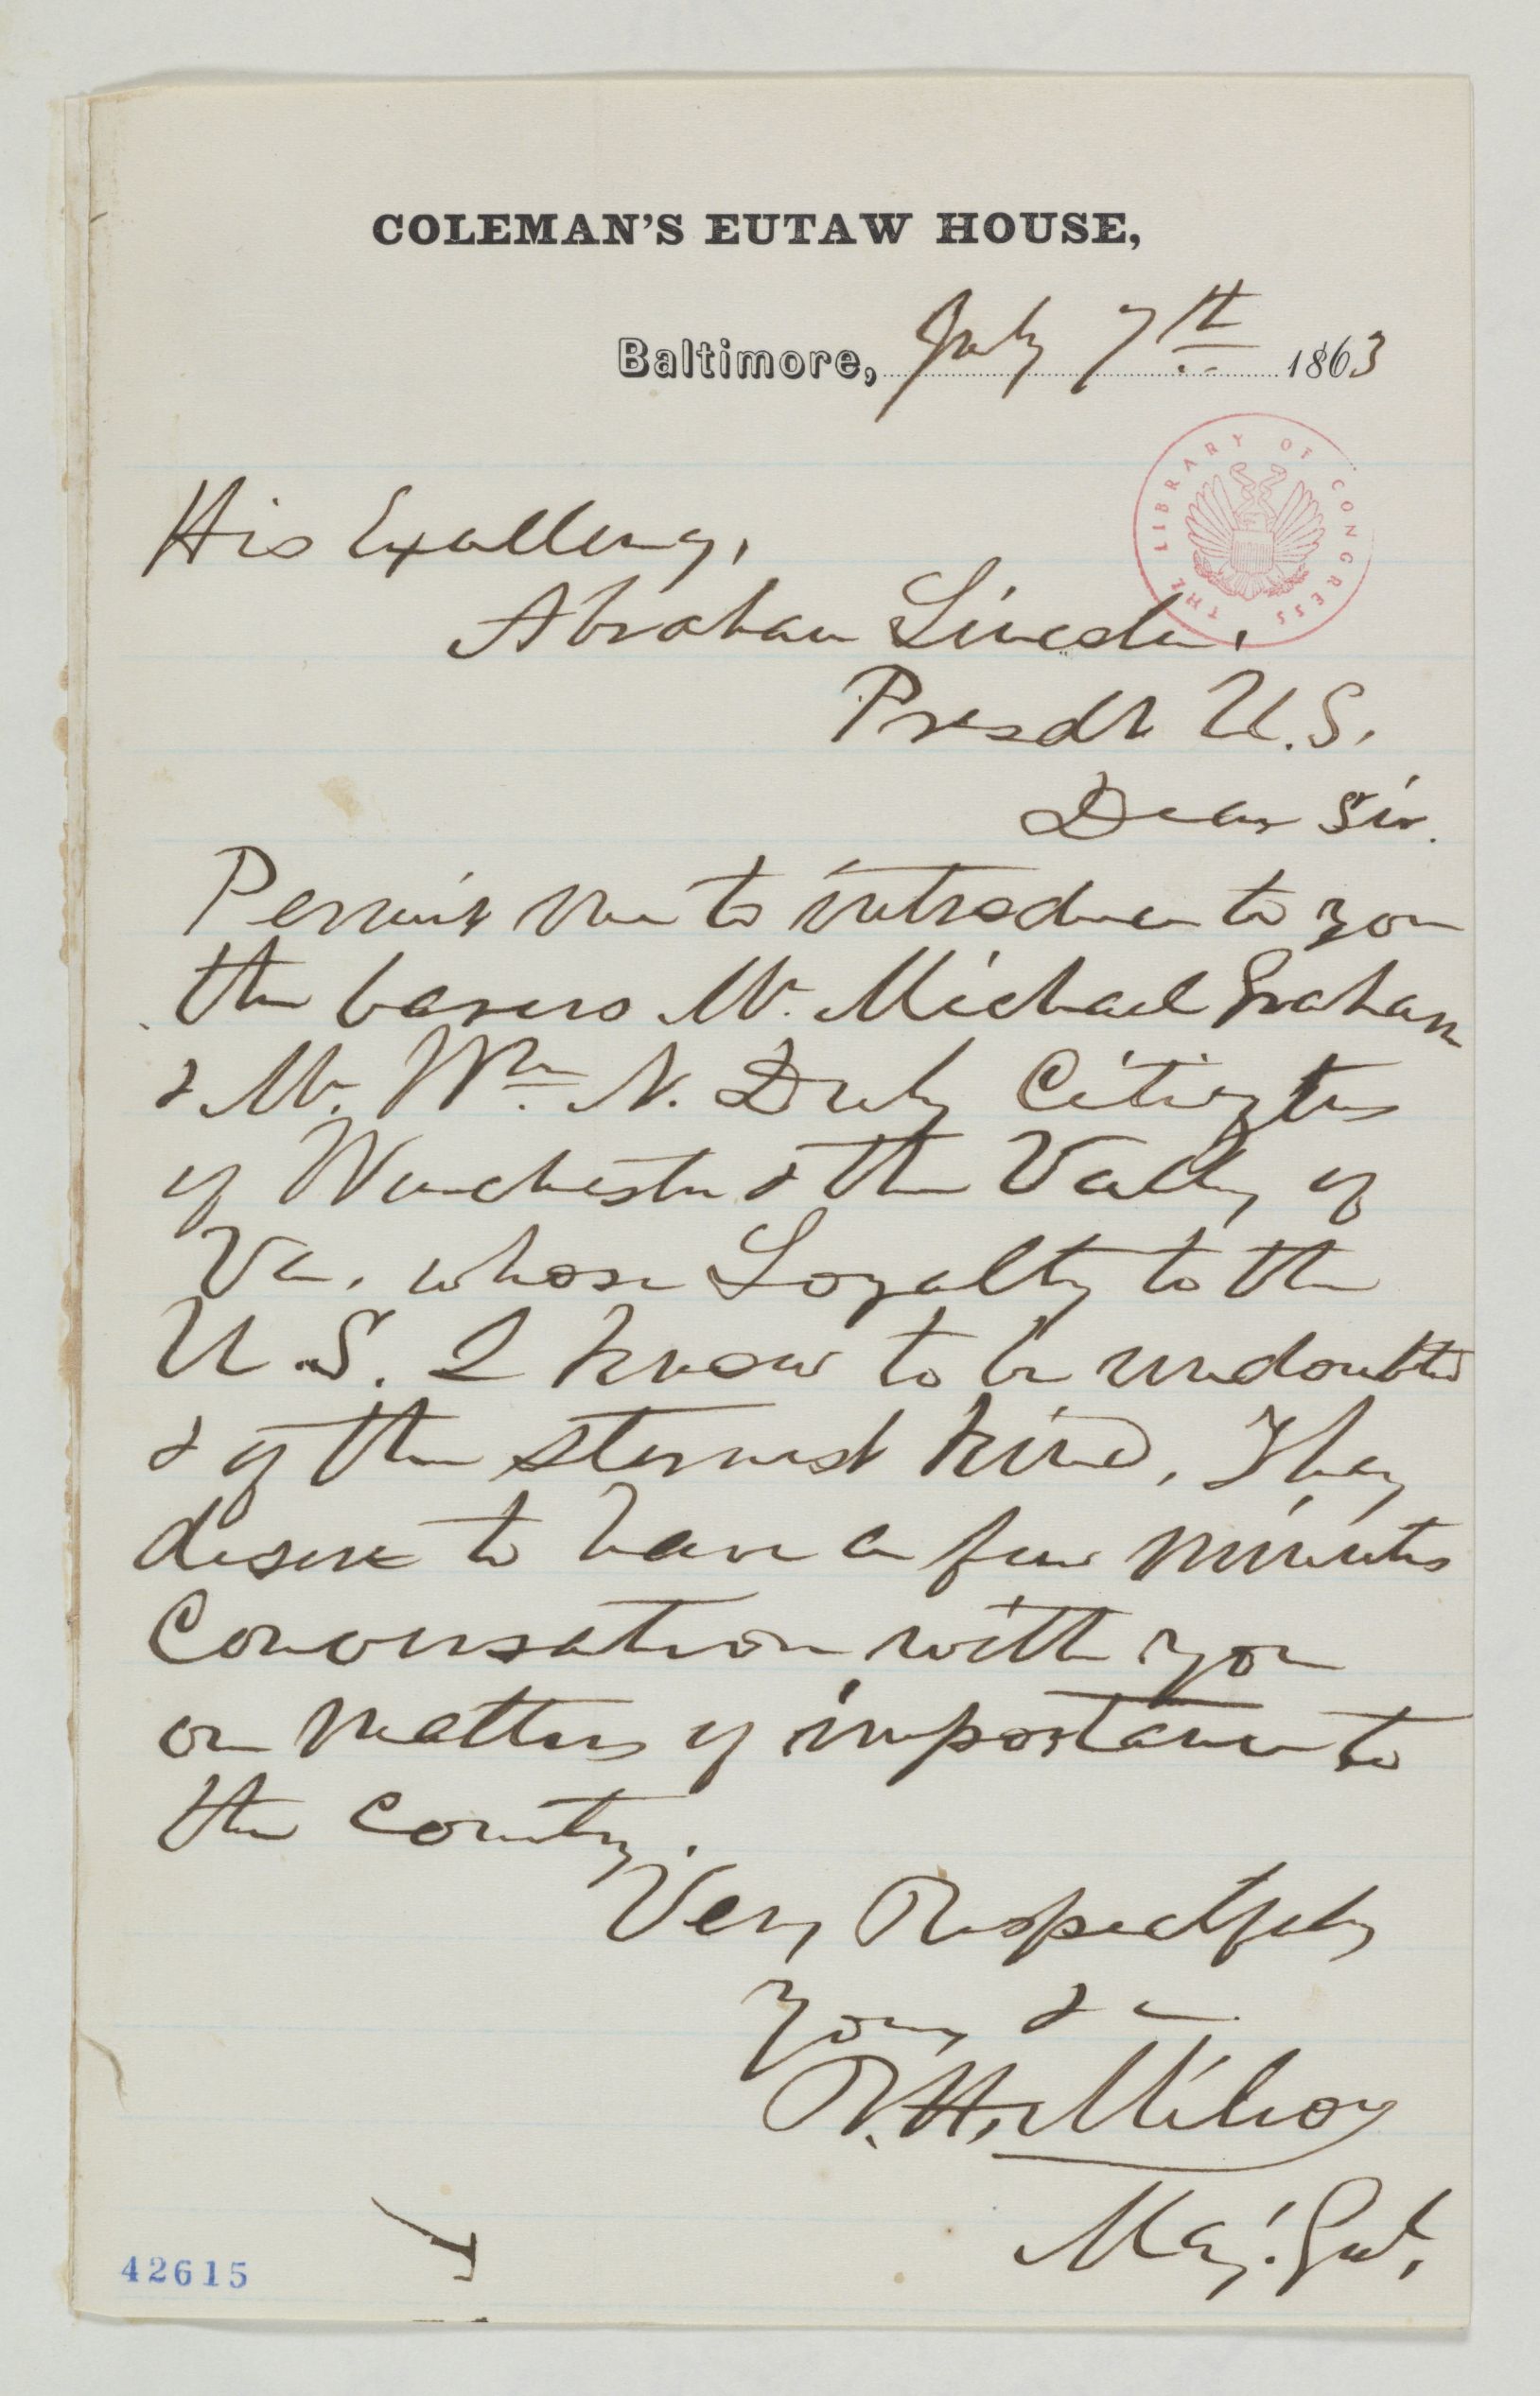 COLEMAN'S EUTAW HOUSE,
Baltimore, July 7th 1863
THE LIBRARY OF CONGRESS
His Excellency,
Abraham Lincoln,
Presdt U.S.
Dear Sir.
Permit me to introduce to you
the bearers Mr. Michael Graham
& Mr. Wm. N. Citizens
of Winchester & the Valley of
Va. whose Loyalty to the
U.S. I know to be undoubted
& of the sternest kind, They
desire to have a few minutes
Conversation with you
on matters of importance to
the country.
Very Respectfuly
Yours &c
R.H. Milroy
Maj. Genl.
42615